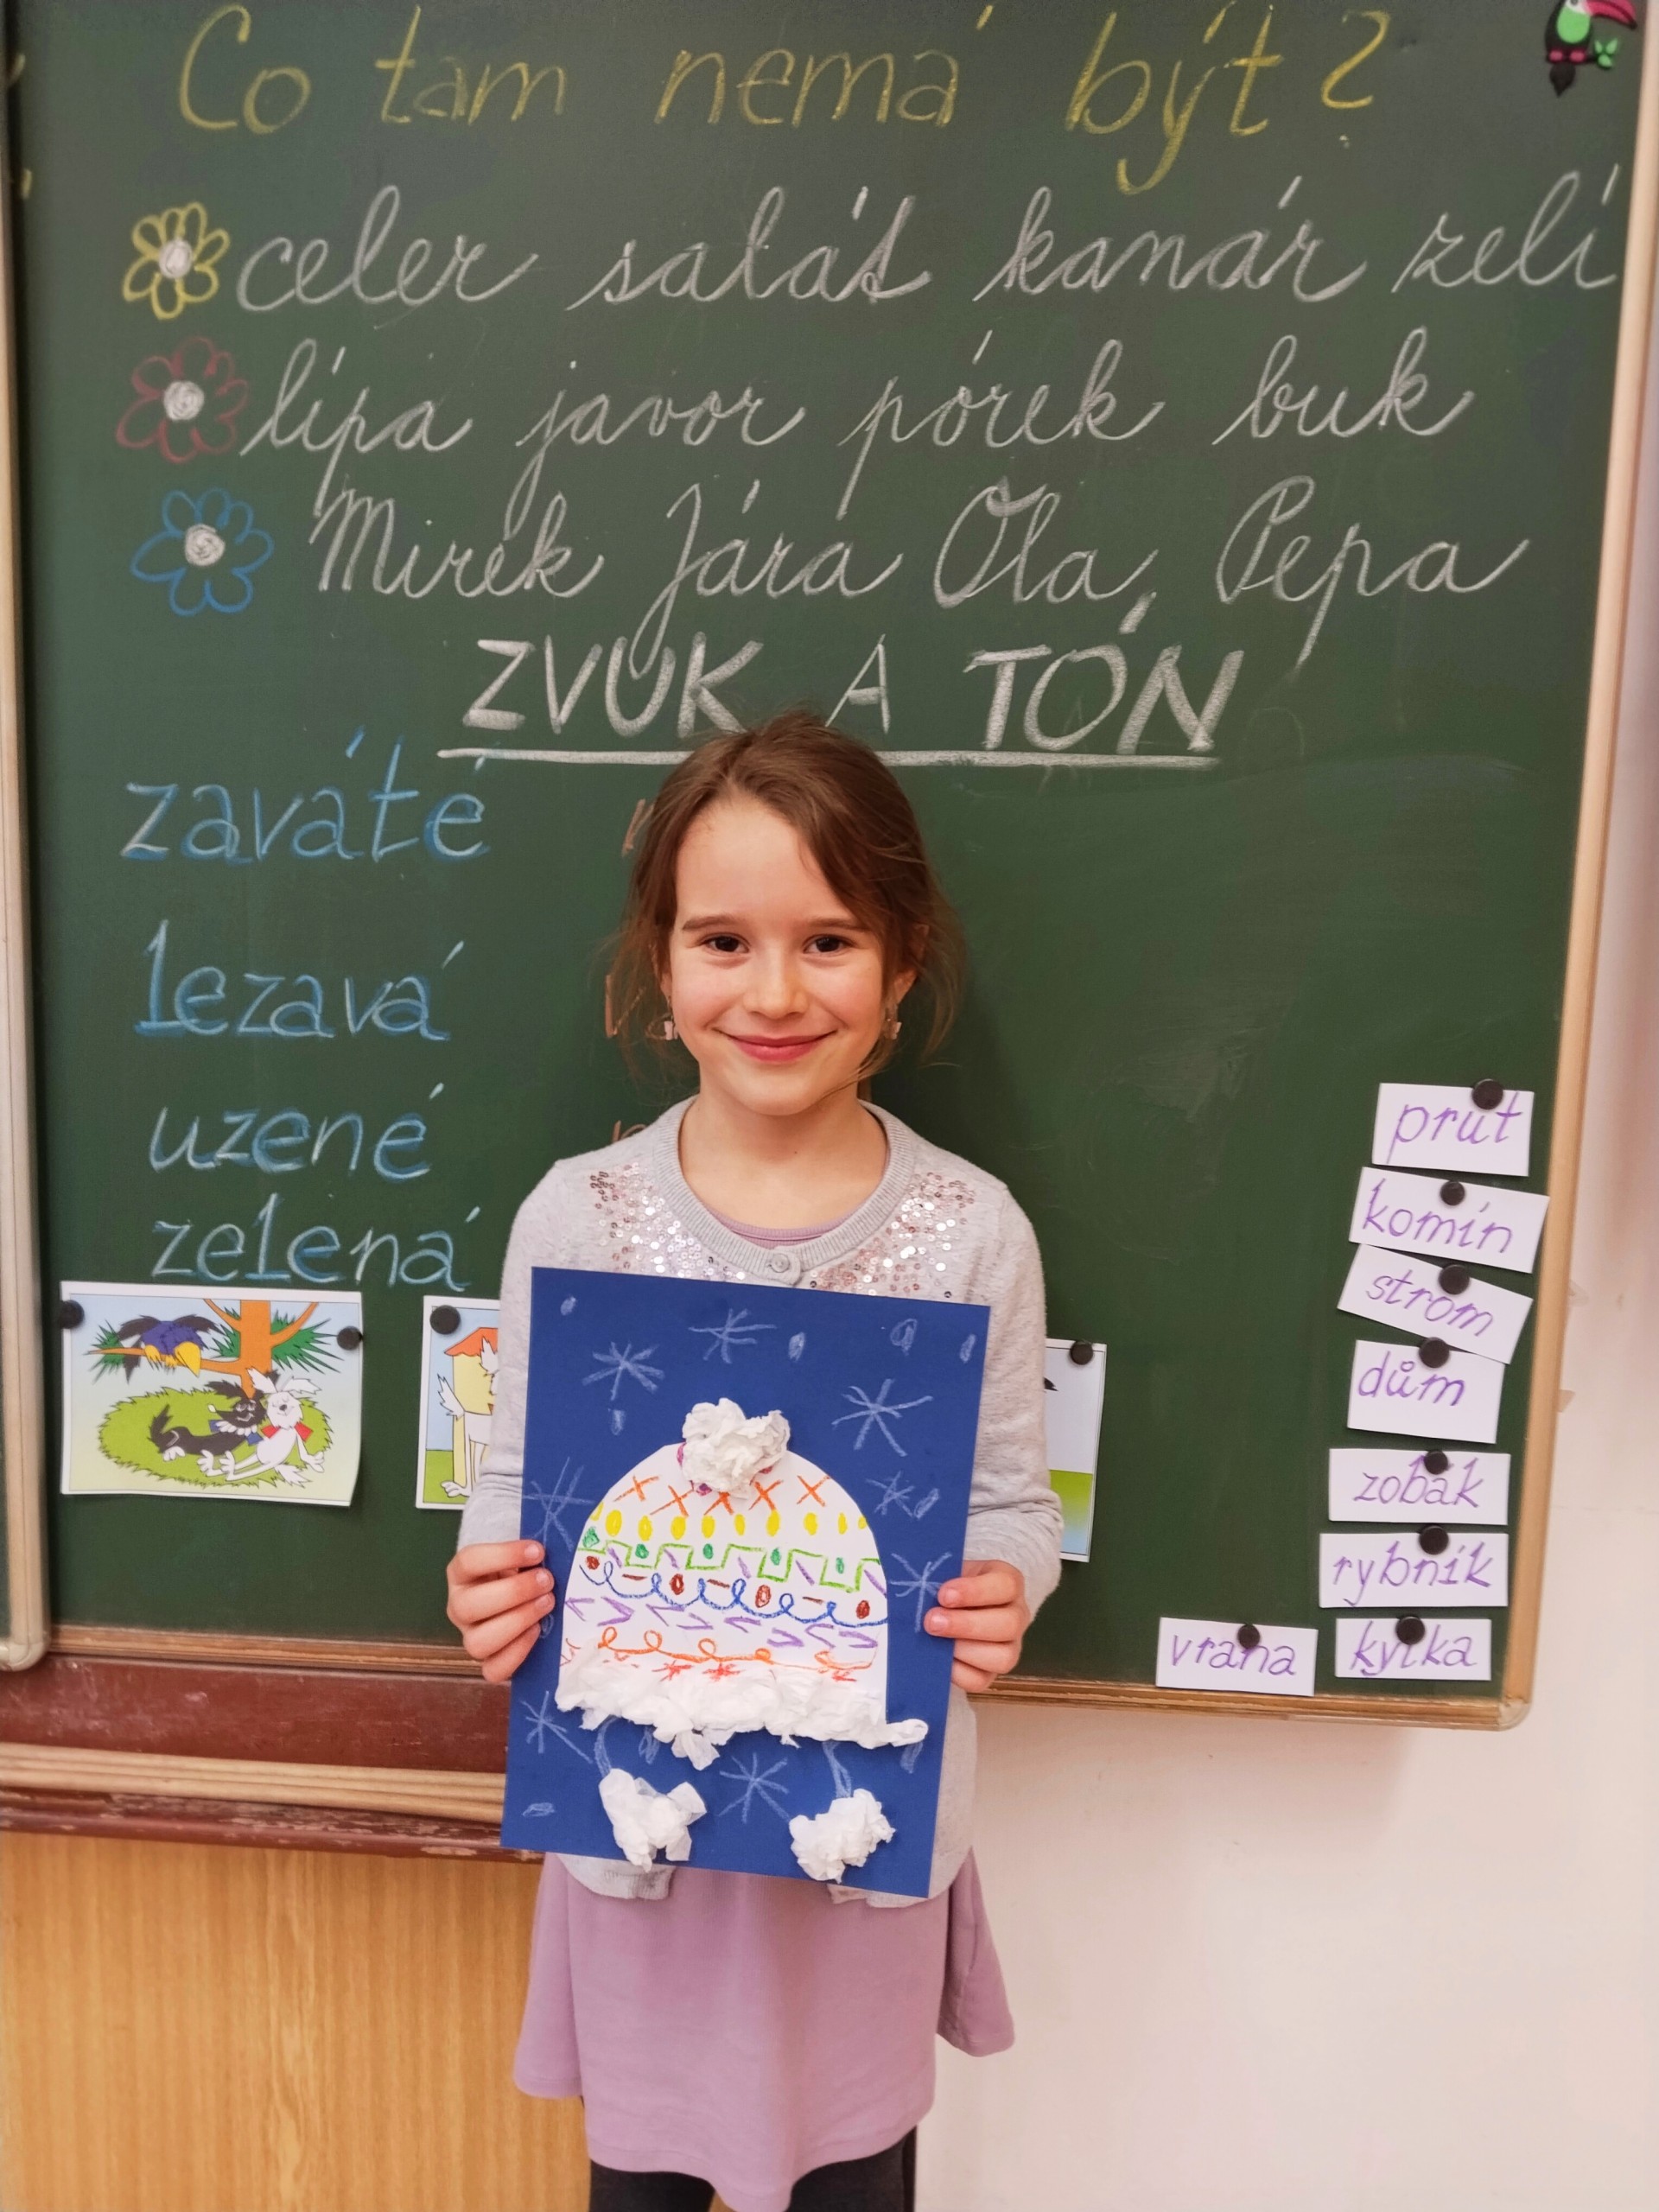 Co tam nemá být?
celer salát kanár zelí
lípa javor pórek buk
Mirek Jára Ola Pepa
ZVUK A TÓN
zaváté
lezavá
uzené
zelená
prut
komín
strom
dům
zobák
rybník
vrána kytka